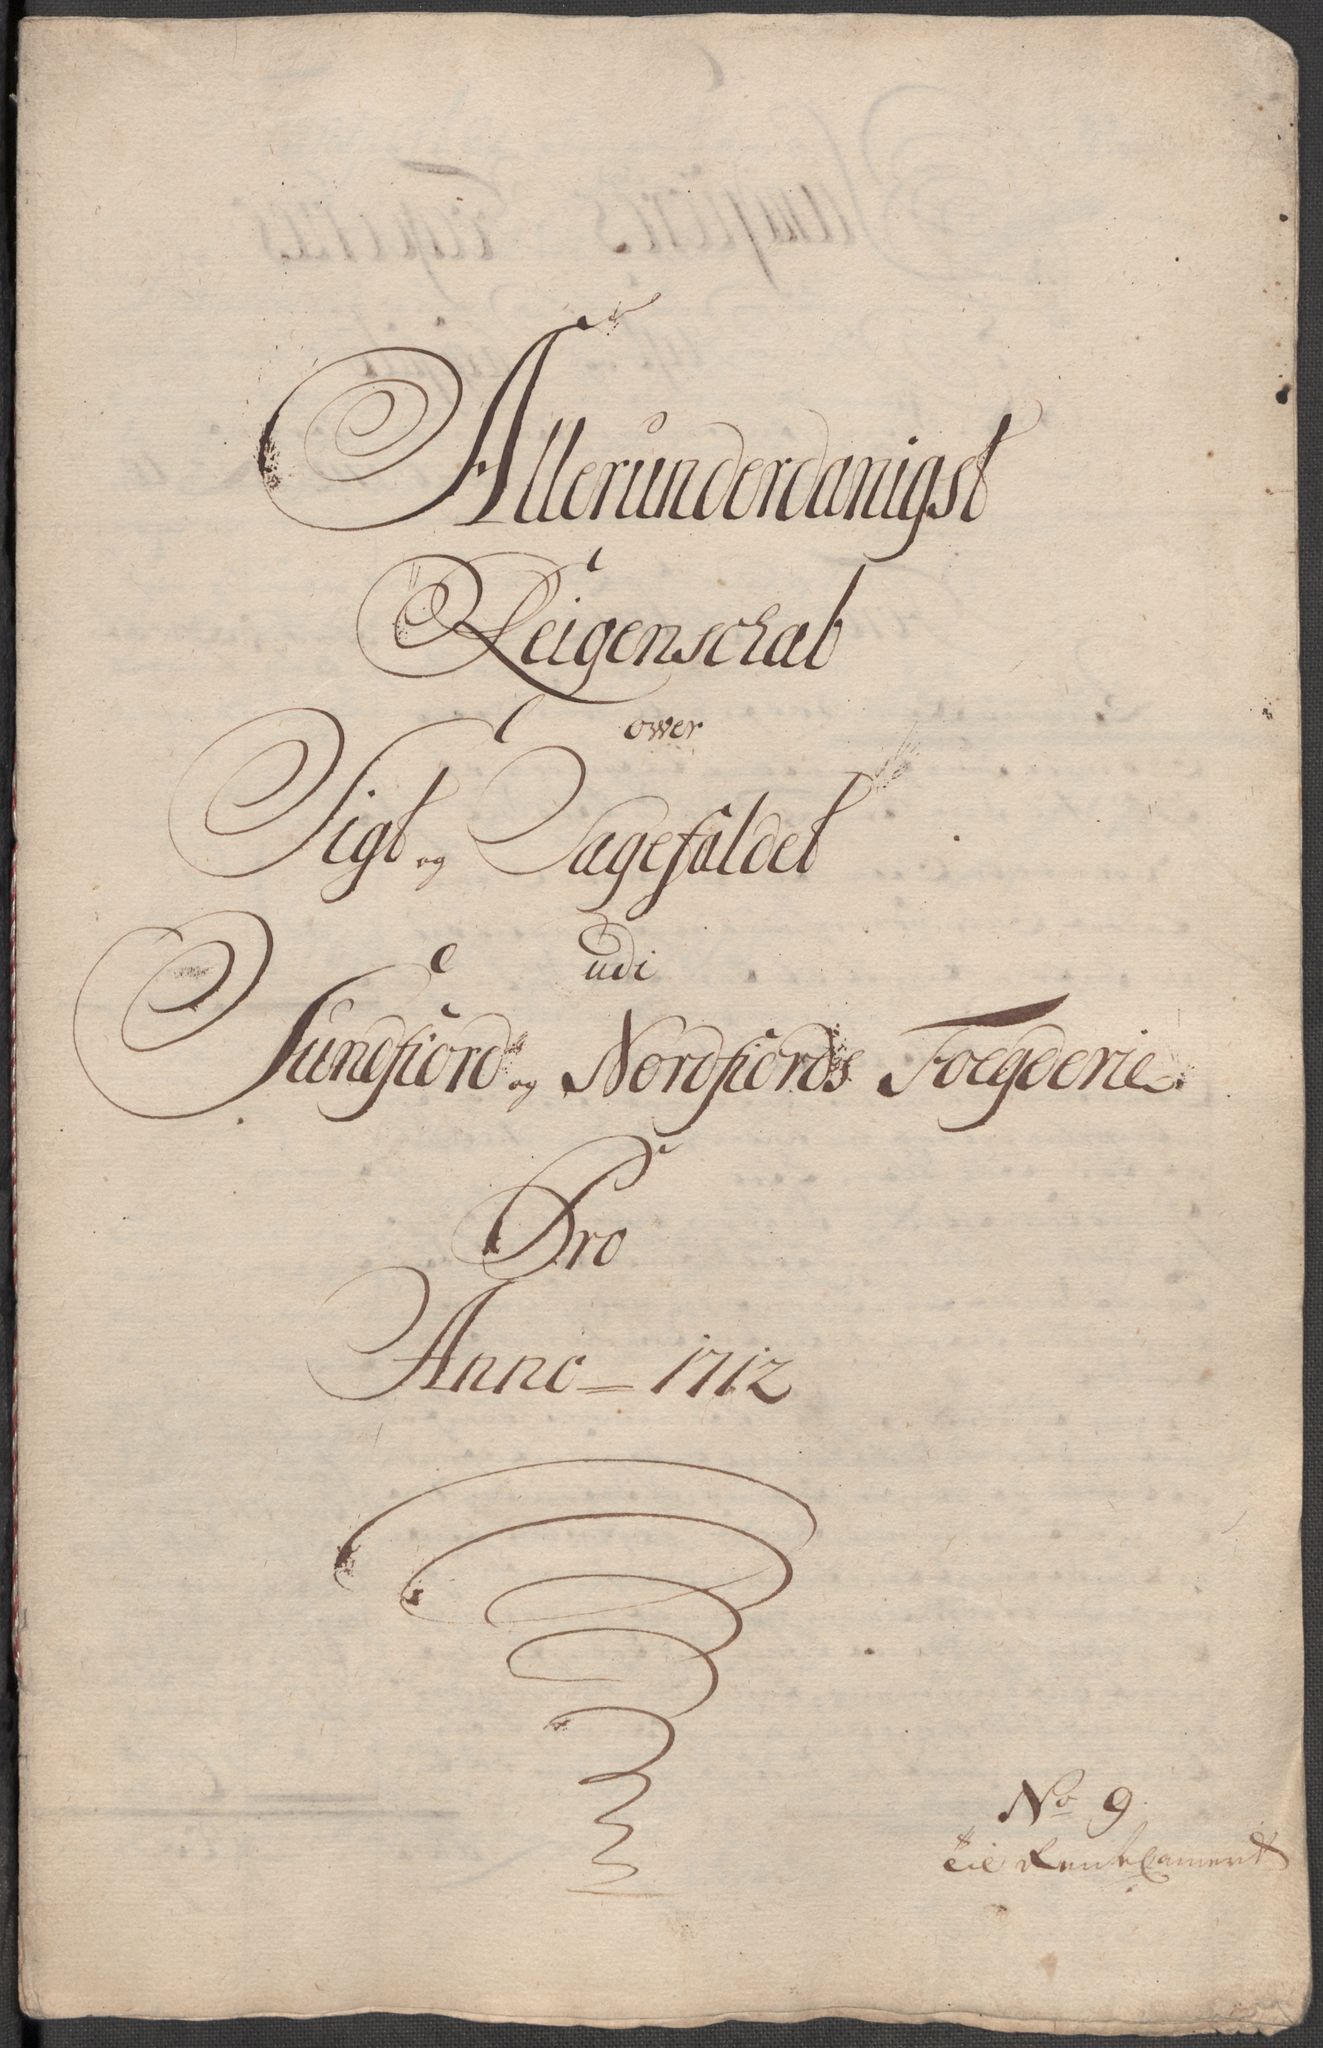 Allerunderdanigst
Reigenschab
ower
Sigt og Sagefaldet
udi
Sundfiord og Nordfiords Foegderie
Pro
Anno - 1712
No 9.
til RenteCameret